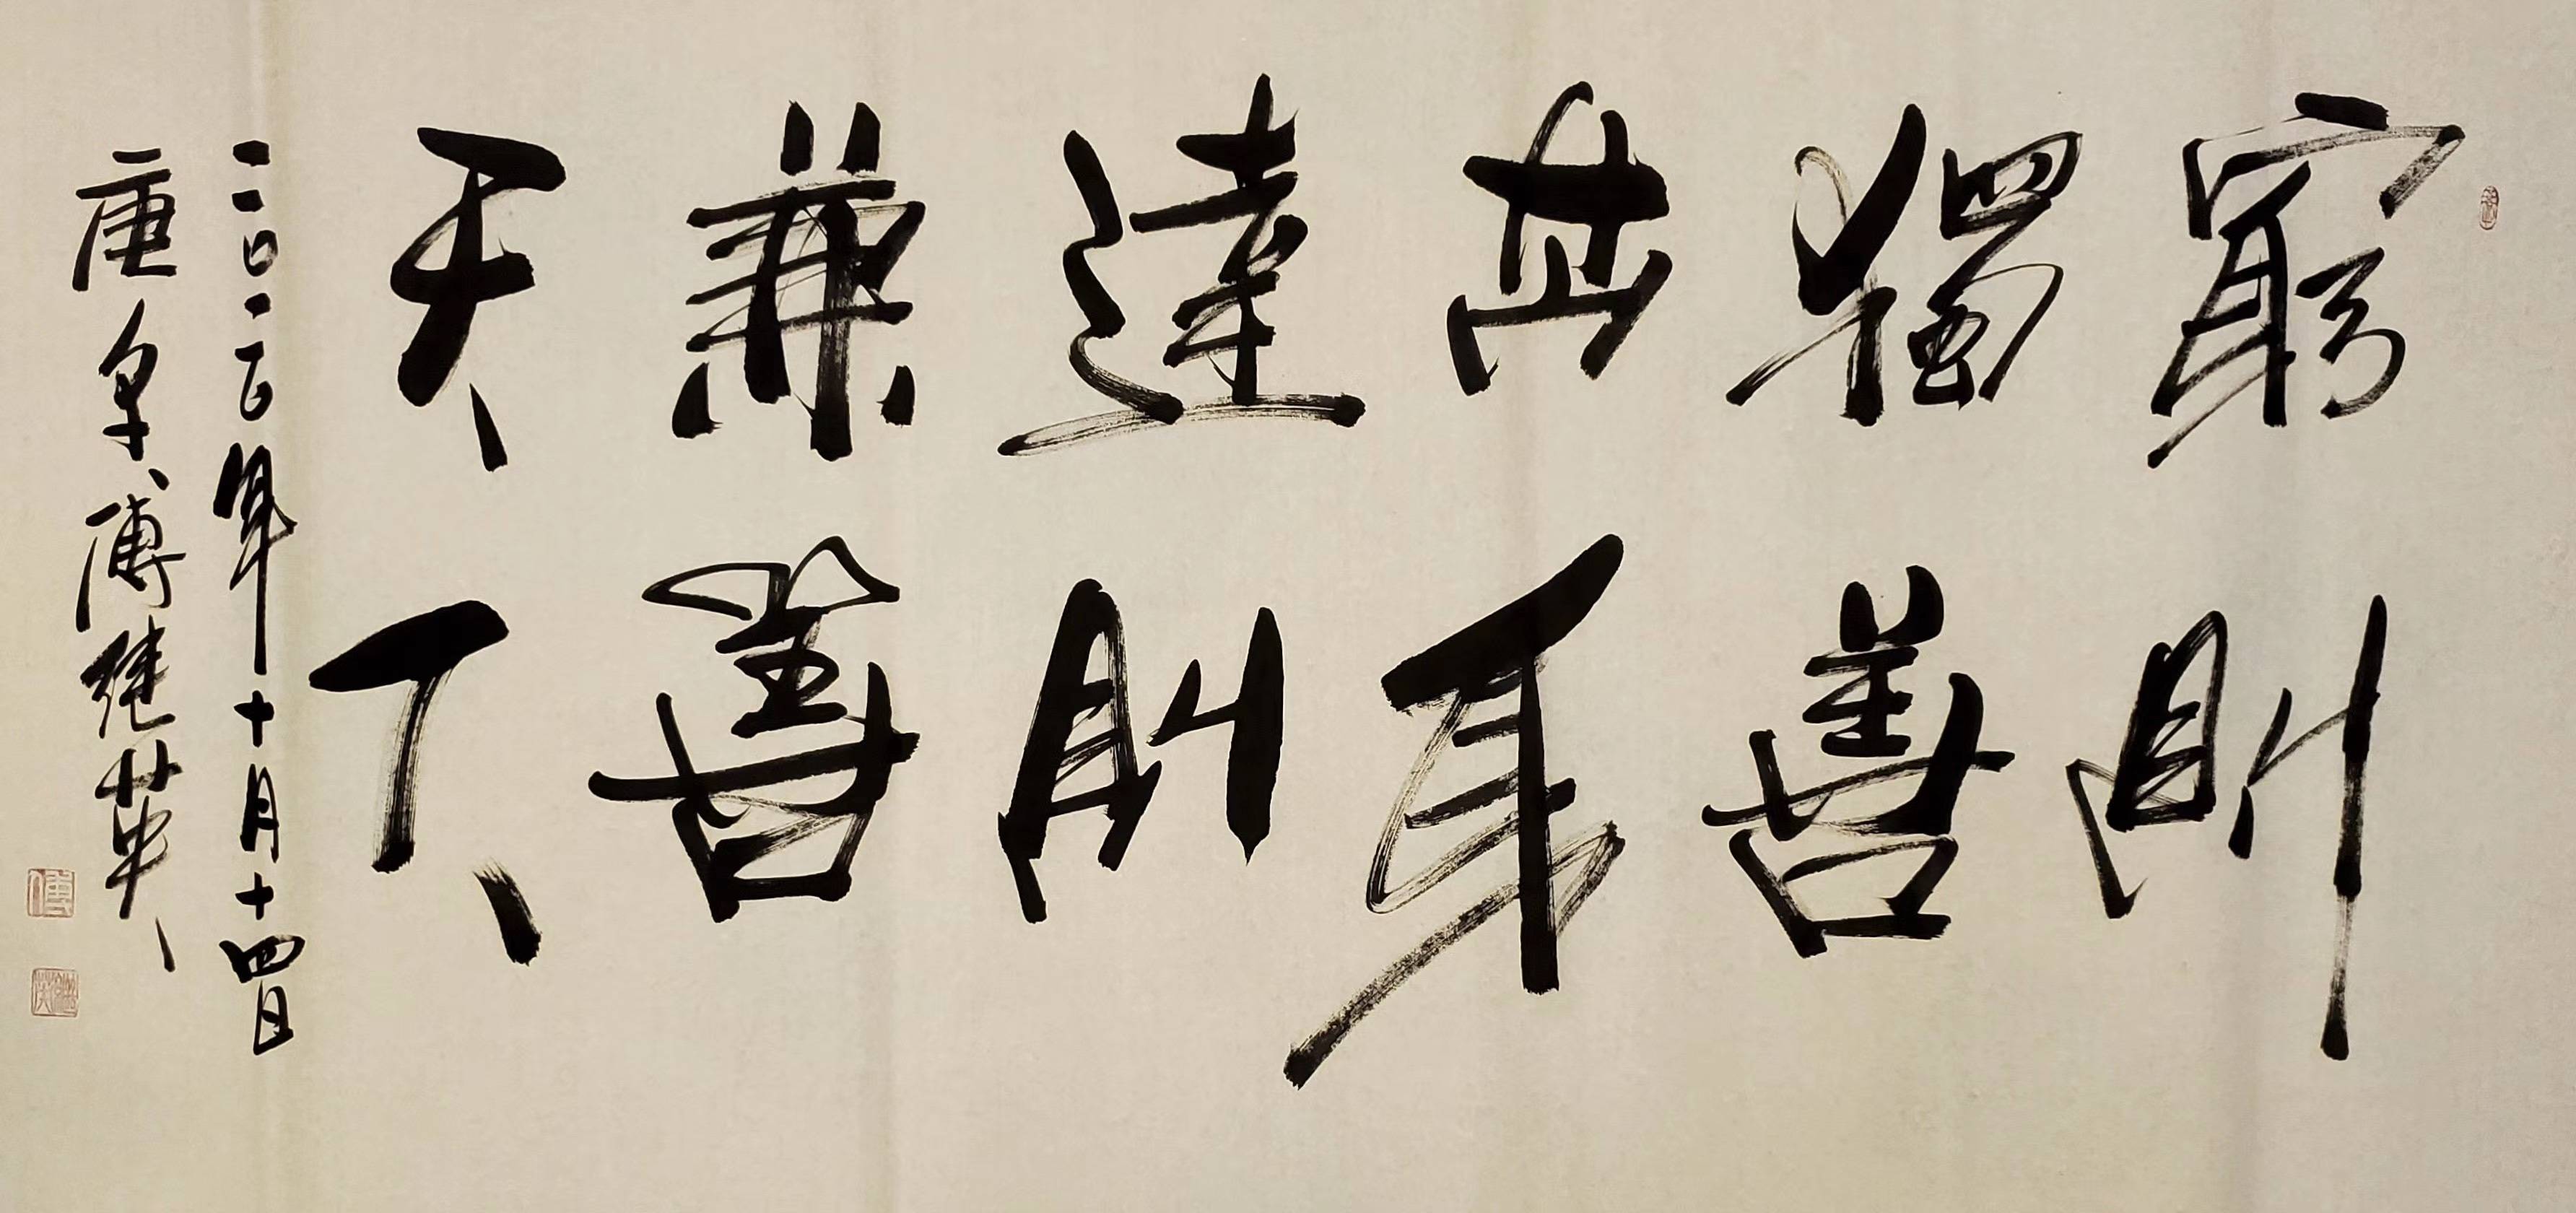 窮則
獨善
其身
達則
兼善
天下
二〇二〇年十月十四日
傅繼英